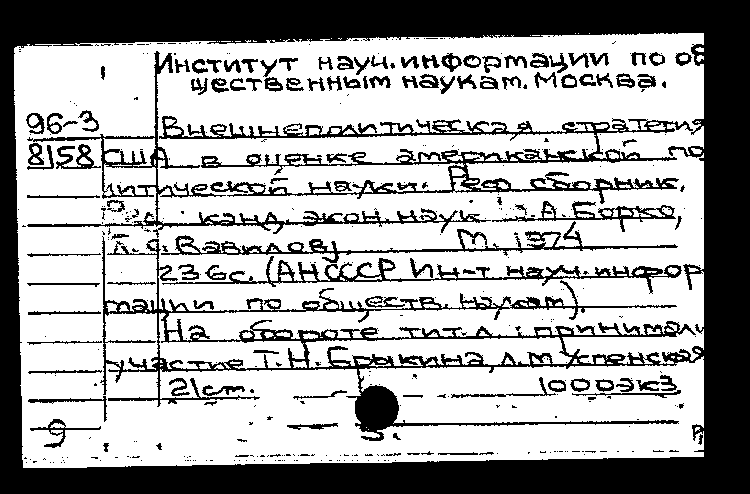 Институт науч.информации по об
щественным наукам. Москва.
96-3 Внешнеполитическая стратегия
8158 США в оценке американской по
литической науки. Реф сборник.
канд. экон. наук А. Борко,
Вавилов М., 1974
236с. (АН СССР Ин-т науч. инфор
мации по обществ. наукам).
На обороте тит.л.: принимали
участие Т.Н. Брыкина, Л.М Успенская
21см. 1000экз
9